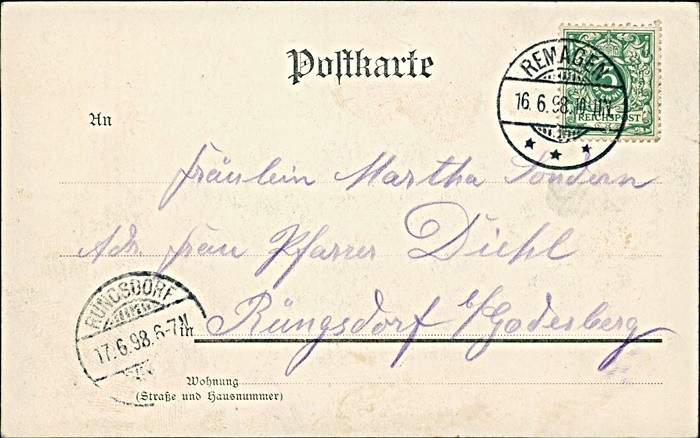 Postkarte
REMAGEN
16.6.98.10-11N.
5
REICHSPOST
An
Fräulein Martha Sondern
Adr. Frau Pfarrer Diehl
RÜNGSDORF
17.6.98.6-7N
in Rüngsdorf b/Godesberg
Wohnung
(Straße und Hausnummer)